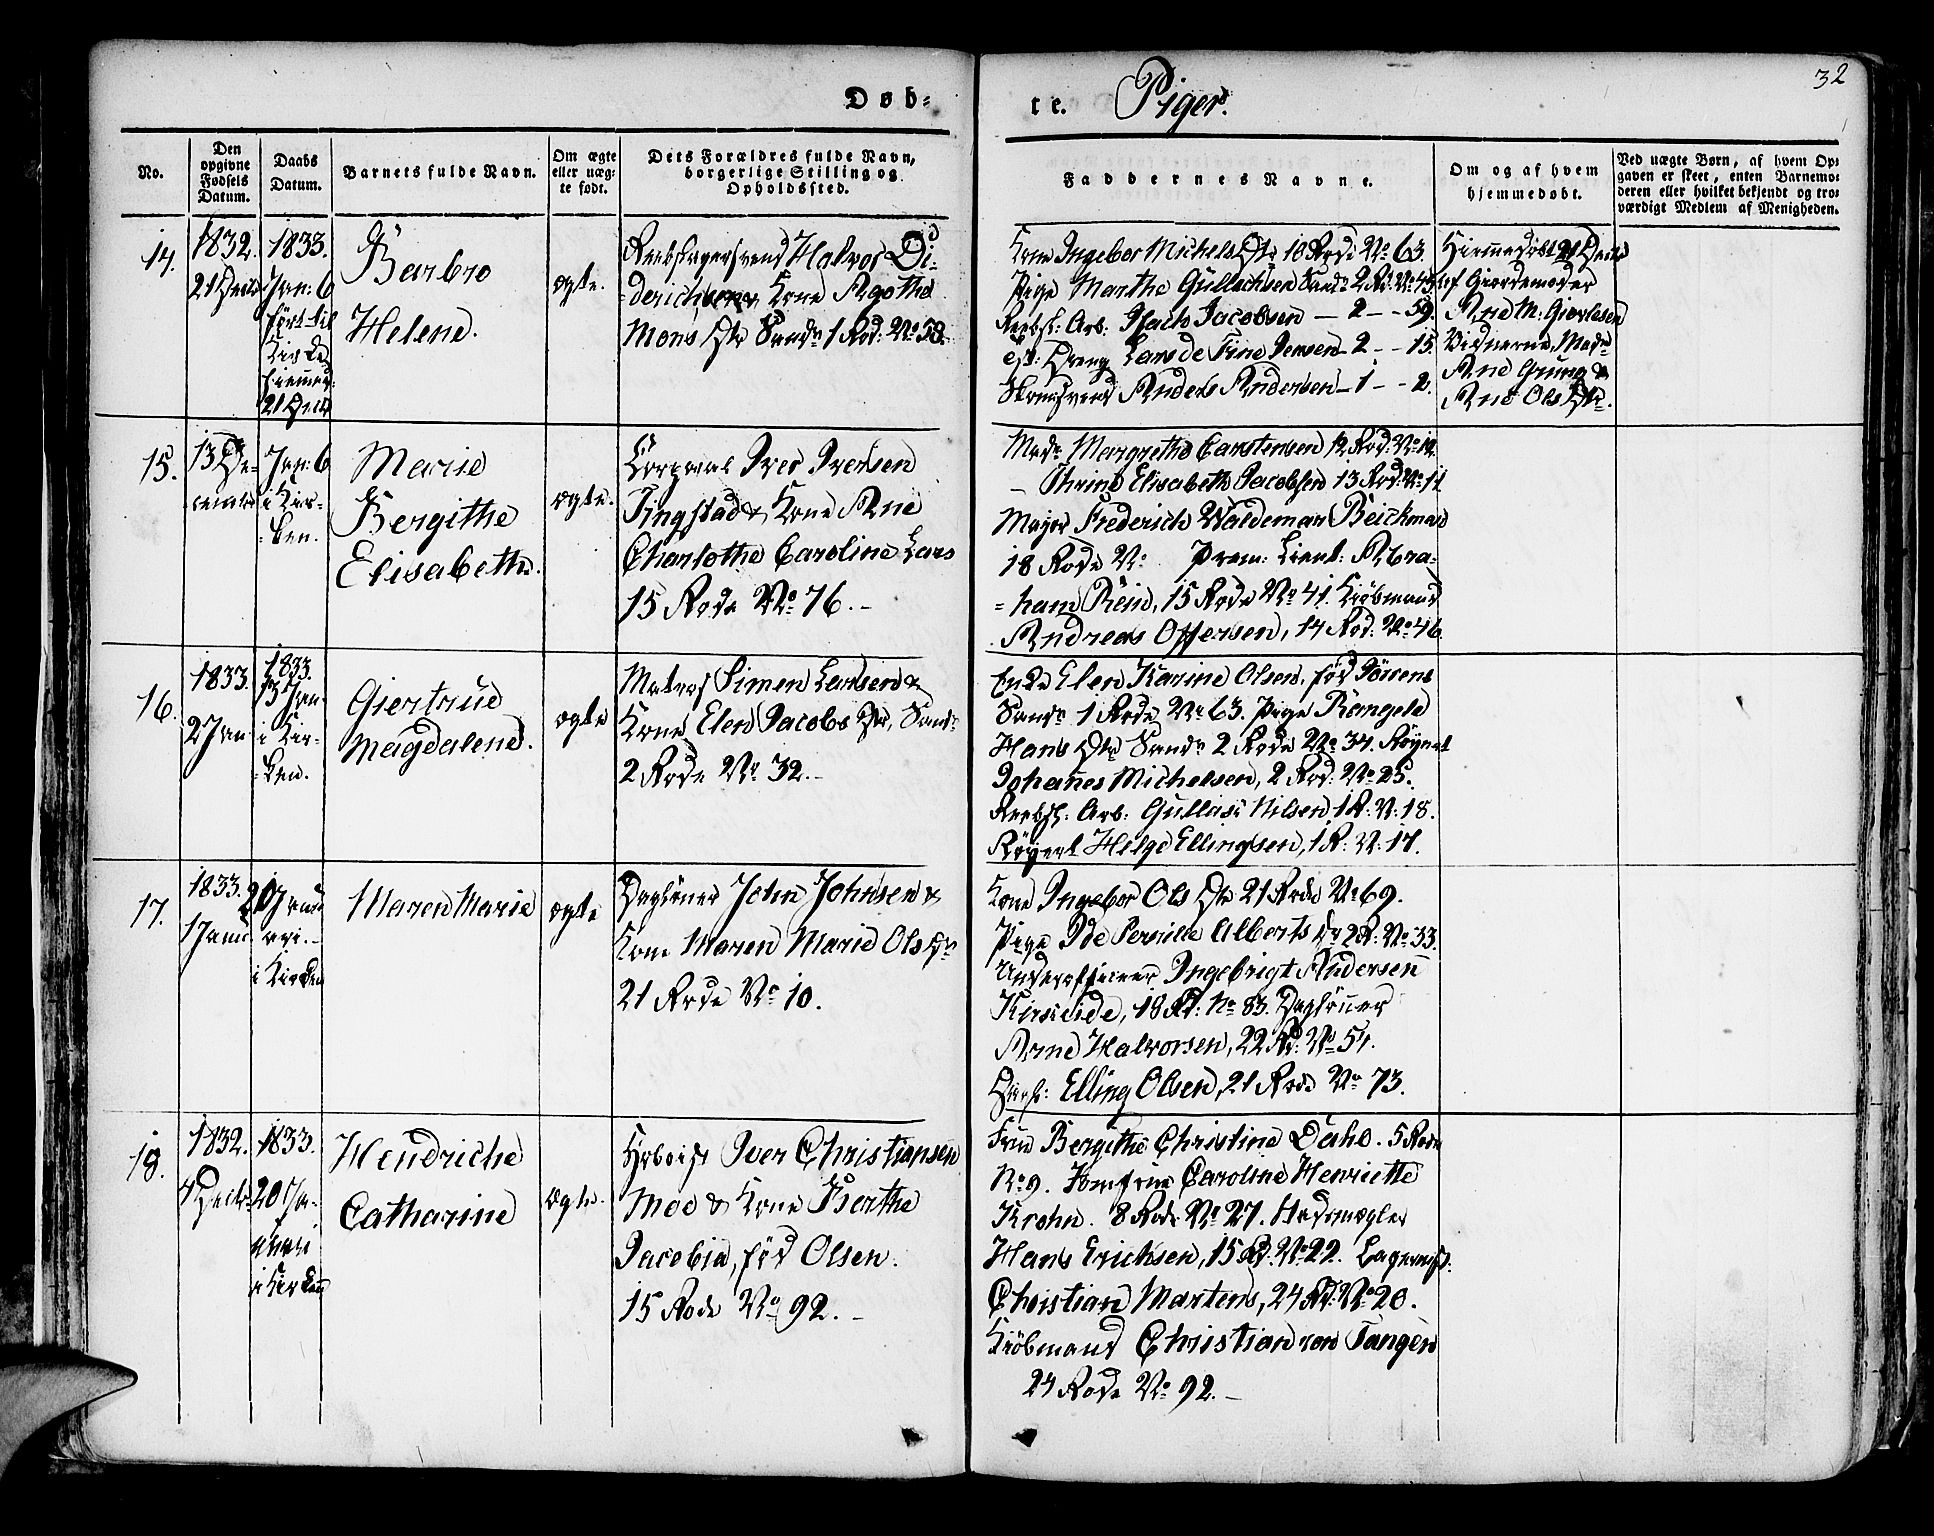 Døb=
te. Piger.
32
No.
Den opgivne Fødsels Datum.
Daabs Datum.
Barnets fulde Navn.
Om ægte eller uægte født.
Dets Forældres fulde Navn, borgerlige Stilling og Opholdssted.
Faddernes Navne.
Om og af hvem hjemmedøbt.
Ved uægte Børn, af hvem Opgaven er skeet, enten Barnemoderen eller hvilket bekjendt og troværdigt Medlem af Menigheden.
14.
1832.
21 Decbr
1833.
Jan: 6
ført til
Kirke
hiemmed:
21 Decbr
Barbro
Helene.
ægte.
Reebslagersvend Halvor Di=
=derichsen, Kone Agothe
Mons Dtr Sandv. 1 Rod: No 58.
Kone Ingebor Michels Dtr 18 Rode No 63.
Pige Marthe Gullachsen Sandv 2 Rd: No 45.
Reebsl: Arb: Isach Jacobsen — 2 — - 59.
Dreng Lars de Fine Jensen - 2 - - 15.
Anders Andersen - 1 - - 2.
Hiemmedøbt 21 Decbr
af Giordemoder
Ane M: Giertsen
Vidnerne, Mad:
Ane Grung &
Ane Ols Dtr.
15.
13 De-
cember
Jan: 6
i Kir-
=ken.
Marie
Bergithe
Elisabeth.
ægte.
Corporal Iver Iversen
Tingstad & Kone Ane
Charlothe Caroline Lars
15 Rode No 76. -
Mad: Margrethe Carstensen 12 Rod: No 12
— Thrine Elisabeth Jacobsen 13 Rod: No 11
Major Frederich Waldemar Beichmand
18 Rode No Prem: Lieut: Abra-
=ham Rein, 15 Rode No 41. Kiøbmand
Andreas Offersen, 14 Rod: No 46
16.
1833.
2 Jan
1833.
13 Jan-
i Kir-
=ken.
Giertrue
Magdalene.
ægte
Matros Simen Larsen &
Kone Elen Jacobs Dtr, Sandv
2 Rode No 32. -
Enke Elen Karine Olsen, fød Jørrens
Sandv 1 Rode No 63. Pige Rangele
Hans Dtr Sandv 2 Rode No 34. Røgert
Johannes Michelsen, 2 Rod: No 25.
Reebsl. Arb: Gullak Nilsen, 1 R: N: 18.
Røgert Helge Ellingsen, 1 R: N: 17.
17.
1833.
1 Janu
20 Janu
ari. -
i Kirken
Maren Marie
ægte
Dagløner John Johnsen &
Kone Maren Marie Ols Dtr
21 Rode No 10.
Kone Ingebor Ols Dtr 21 Rode No 69.
Pige Ide Pernille Alberts Dr 2 R: No 33.
Underofficer Ingebrigt Andersen
18 Rd: No 83. Dagløner
Arne Halvorsen, 22 Rd: No 54.
Dagl: Elling Olsen, 21 Rode No 73.
18.
1832.
4 Decbr
1833.
20 Ja-
nuari
i Kirken
Hendriche
Catharine
ægte.
Hoboist Iver Christiansen
Moe & Kone Berthe
Jacobia, fød Olsen.
15 Rode No 92. -
Frue Bergithe Christine Dahl. 5 Rode
No 9. Jomfrue Caroline Henriette
Krohn. 8 Rode No 27. Stadsmægler
Hans Erichsen, 15 Rd: No 22.
Christian Martens, 24 Rd: No 20.
Kiøbmand Christian von Tangen
24 Rode No 92. -